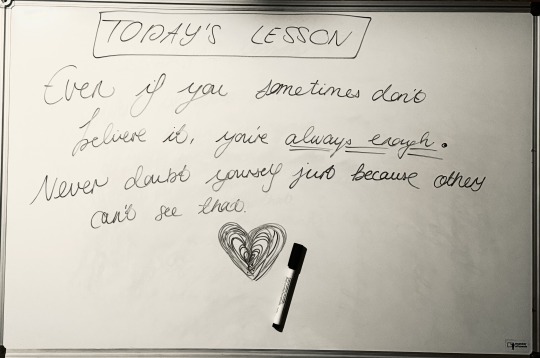 TODAY'S LESSON
Even if you sometimes don't
believe it, you're always enough.
Never doubt yourself just because others
can't see that.